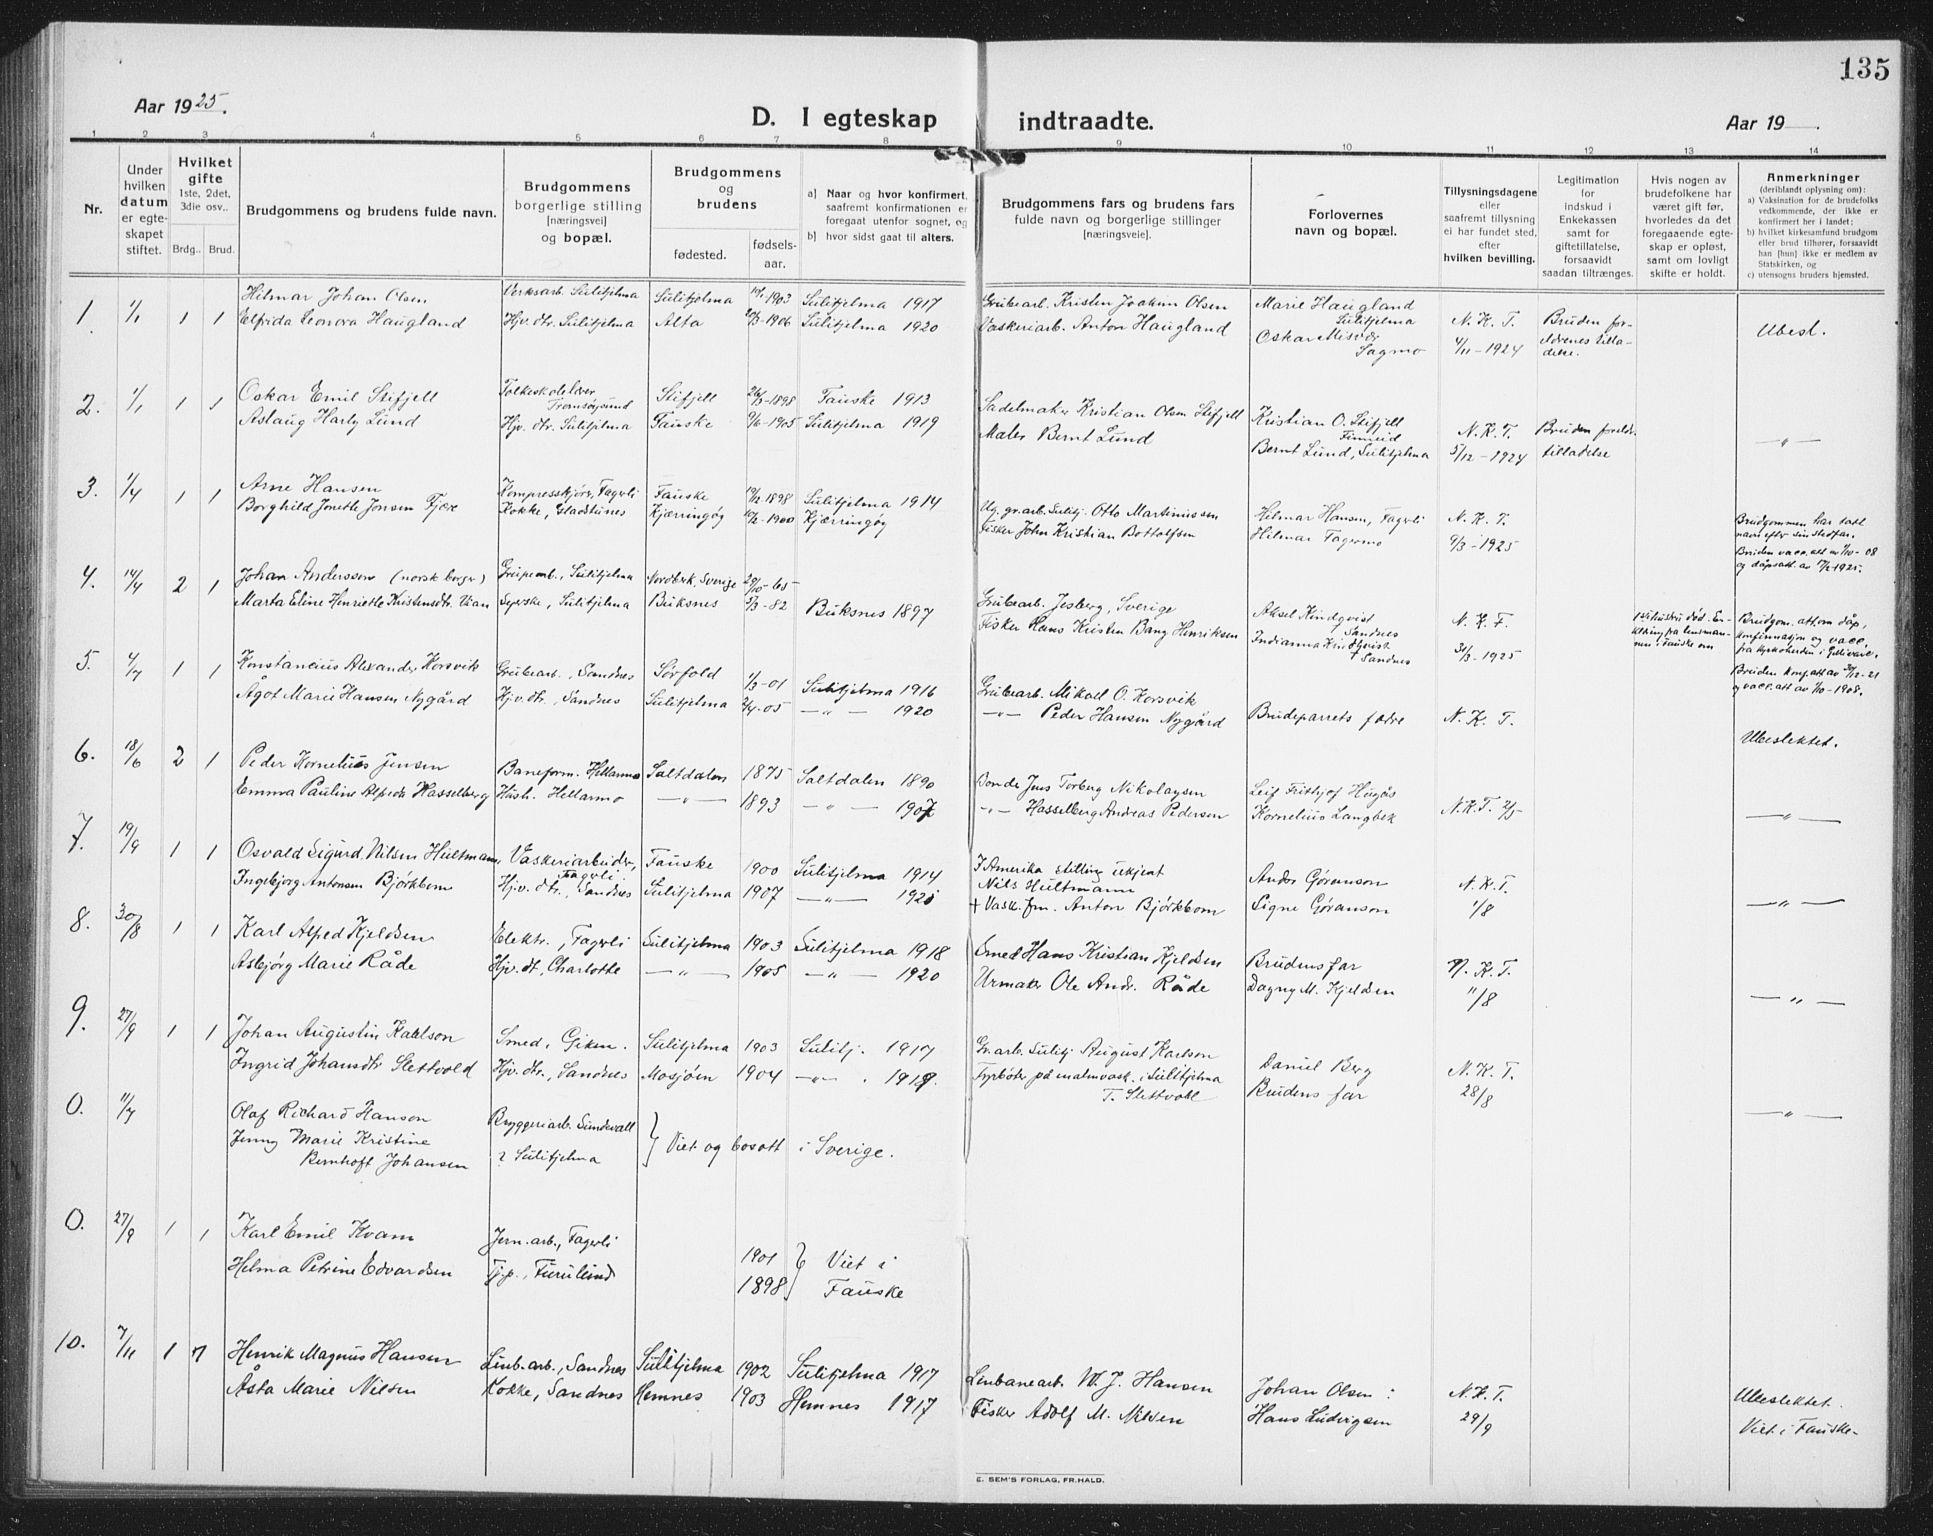 135
Aar 1925.
D. I egteskap indtraadte.
Aar 19 .
1 2 3 4 5 6 7 8 9 10 11 12 13 14
Nr.
Under hvilken datum er egteskapet stiftet.
Hvilket gifte
1ste, 2det, 3die osv..
Brdg.. Brud.
Brudgommens og brudens fulde navn.
Brudgommens borgerlige stilling [næringsvei] og bopæl.
Brudgommens og brudens
fødested. fødselsaar.
a) Naar og hvor konfirmert, saafremt konfirmationen er foregaat utenfor sognet, og
b) hvor sidst gaat til alters.
Brudgommens fars og brudens fars fulde navn og borgerlige stillinger [næringsveie].
Forlovernes navn og bopæl.
Tillysningsdagene eller saafremt tillysning ei har fundet sted, efter hvilken bevilling.
Legitimation for indskud i Enkekassen samt for giftetilladelse, forsaavidt saadan tiltrænges.
Hvis nogen av brudefolkene har været gift før, hvorledes da det foregaaende egteskap er opløst, samt om lovligt skifte er holdt.
Anmerkninger
(deriblandt oplysning om):
a) Vaksination for de brudefolks vedkommende, der ikke er konfirmert her i landet;
b) hvilket kirkesamfund brudgom eller brud tilhører, forsaavidt han [hun] ikke er medlem av Statskirken, og
c) utensogns bruders hjemsted.
1. 1/1 1 1 Hilmar Johan Olsen Verksarb. Sulitjelma Sulitjelma 1903 Sulitjelma 1917 Grubearb. Kristen Joakim Olsen Marie Haugland Sulitjelma
Elfrida Leonora Haugland Hjv. dtr. Sulitjelma Alta 1906 Sulitjelma 1920 Vaskeriarb. Anton Haugland Oskar Misvær Sagmo N. K. T. 4/11-1924 Bruden forældrenes tilladelse. Ubesl.
2. 1/1 1 1 Oskar Emil Stifjell Folkeskolelærer, Tromsøysund Stifjell 26/3-1898 Fauske 1913 Sadelmaker Kristian Olsen Stifjell Kristian O. Stifjell Finneid
Aslaug Harly Lund Hjv. dtr. Sulitjelma Fauske 9/6-1905 Sulitjelma 1919 Maler Bernt Lund Bernt Lund, Sulitjelma N. K. T. 5/12-1924 Bruden foreldr. tilladelse —"—
3. 1/4 1 1 Arne Hansen Kompresskjører, Fagerli Fauske 1898 Sulitjelma 1914 Otto Martinussen Hilmar Hansen, Fagerli N. K. T.
Borghild Jonette Jensen Fjære Kokke, Gladstunes Kjærringøy 1900 Kjærringøy Fisker John Kristian Bottolfsen Hilmar Fagermo 9/3-1925
Brudgommen har tatt navn efter sin stedfar. Bruden vacc. att av 1/10-08 og dåpsatt. av 1925.
4. 14/4 2 1 Johan Anderssen (norsk borger) Sulitjelma Nordberk, Sverige 29/10-65 Grubearb. Jesberg, Sverige Aksel Kindqvist Sandnes N. K. T.
Marta Eline Henriette Kristensdtr. Vian Syerske, Sulitjelma Buksnes 5/3-82 Buksnes 1897 Fisker Hans Kristen Bang Henriksen Indianna Kindqvist Sandnes 31/3-1925
Brudgom. attom dåp, konfirmasjon og vacc. fra kyrkoherden i Gellivare. Bruden konf. att av 30/12-21 og vacc. att av 1/10-1908.
5. 4/7 1 1 Konstancius Alexander Korsvik Grubearb., Sandnes Sørfold 1/3-01 Sulitjelma 1916 Grubearb. Mikall O. Korsvik
Ågot Marie Hansen Nygård Hjv. dtr., Sandnes Sulitjelma 2/4-05 —"— 1920 —"— Peder Hansen Nygård Brudeparrets fædre N. K. T. Ubeslektet.
6. 18/6 2 1 Peder Kornelius Jensen Baneform. Hellarmo Saltdalen 1875 Saltdalen 1890 Bonde Jens Torberg Nikolaysen Leif Frithjof Hugås
Emma Pauline Alfreda Hasselberg Hush. Hellarmo —"— 1893 —"— 1907 —"— Hasselberg Andreas Pedersen Kornelius Langbek N. K. T. 2/5 —"—
7. 19/9 1 1 Osvald Sigurd Nilsen Hultmann Vaskeriarbeider, Fagerli Fauske 1900 Sulitjelma 1914 I Amerika stilling ukjent Nils Hultmann Andor Göranson N. K. T.
Ingebjorg Antonsen Björkbom Hjv. dtr., Sandnes Sulitjelma 1907 —"— 1921 + Vask.fm. Anton Björkbom Signe Göranson 1/8 —"—
8. 30/8 1 1 Karl Alfred Kjeldsen Elektr., Fagerli Sulitjelma 1903 Sulitjelma 1918 Smed Hans Kristian Kjeldsen Brudens far N. K. T.
Asbjørg Marie Råde Hjv. dt, Charlotte —"— 1905 —"— 1920 Urmaker Ole Andr. Råde Dagny M. Kjeldsen 11/8 —"—
9. 27/9 1 1 Johan Augustin Karlson Smed, Giken. Sulitjelma 1903 Sulitj. 1917 Gr.arb. Sulitj. August Karlson Daniel Berg N. K. T.
Ingrid Johansdtr Slettvold Hjv. dtr., Sandnes Mosjøen 1904 —"— 1919. Fyrbøter på malmvask. i Sulitjelma T. Slettvold Brudens far 28/8 —"—
0. 11/7 Olaf Richard Hanson Bryggeriarb. Sundsvall
Jenny Marie Kristine Bernhoft Johansen ? Sulitjelma } Viet og bosatt i Sverige.
0. 27/9 1 1 Karl Emil Kvam Jern.arb., Fagerli 1901 } Viet i
Helma Petrine Edvardsen Tj.p., Furulund 1898 Fauske
10. 7/11 1 1 Henrik Magnus Hansen Linb.arb., Sandnes Sulitjelma 1902 Sulitjelma 1917 Linbanearb. W. J. Hansen Johan Olsen N. K. T. Ubeslektet.
Åsta Marie Nilsen Kokke, Sandnes Hemnes 1903 Hemnes 1917 Fisker Adolf M. Nilsen Hans Ludvigsen 29/9 Viet i Fauske
E. SEM'S FORLAG, FR.HALD.